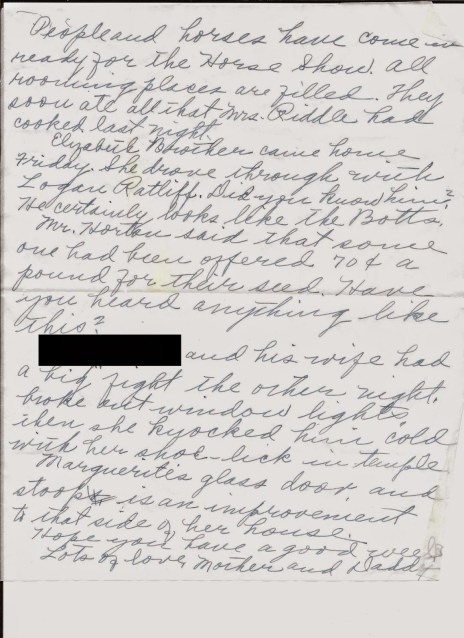 People and horses have come in
ready for the Horse Show. All
rooming places are filled. They
soon ate all that Mrs. Riddle had
cooked last night.
Elizabeth Brother came home
Friday. She drove through with
Logan Ratliff. Did you know him?
He certainly looks like the Botts.
Mr. Horton said that some
one had been offered 70¢ a
pound for their seed. Have
you heard anything like
this?
and his wife had
a big fight the other night,
broke out window lights
then she knocked him cold
with her shoe-lick in temple
Marguerite's glass door and
stoop is an improvement
to that side of her house.
Hope you have a good week
Lots of love, Mother and Daddy